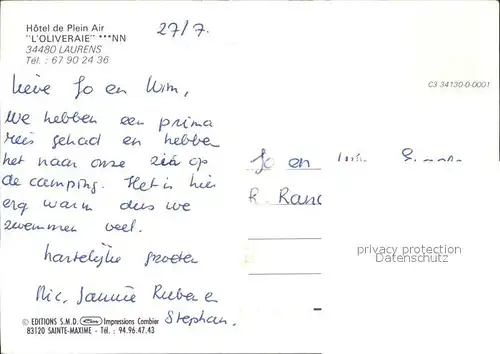 Hôtel de Plein Air
"L'OLIVERAIE" ***NN
34480 LAURENS
Tél. : 67 90 24 36
27/7.
C3 34130-0-0001
Lieve Jo en Wim,
We hebben een prima
reis gehad en hebben
het naar onze zin op
de camping. Het is hier
erg warm dus we
zwemmen veel.
hartelijke groeten
Ric, Jannie Ruben en
Stephan.
Jo en
R.
privacy protection
Datenschutz
© EDITIONS S.M.D. Impressions Combier
83120 SAINTE-MAXIME - Tél. : 94.96.47.43